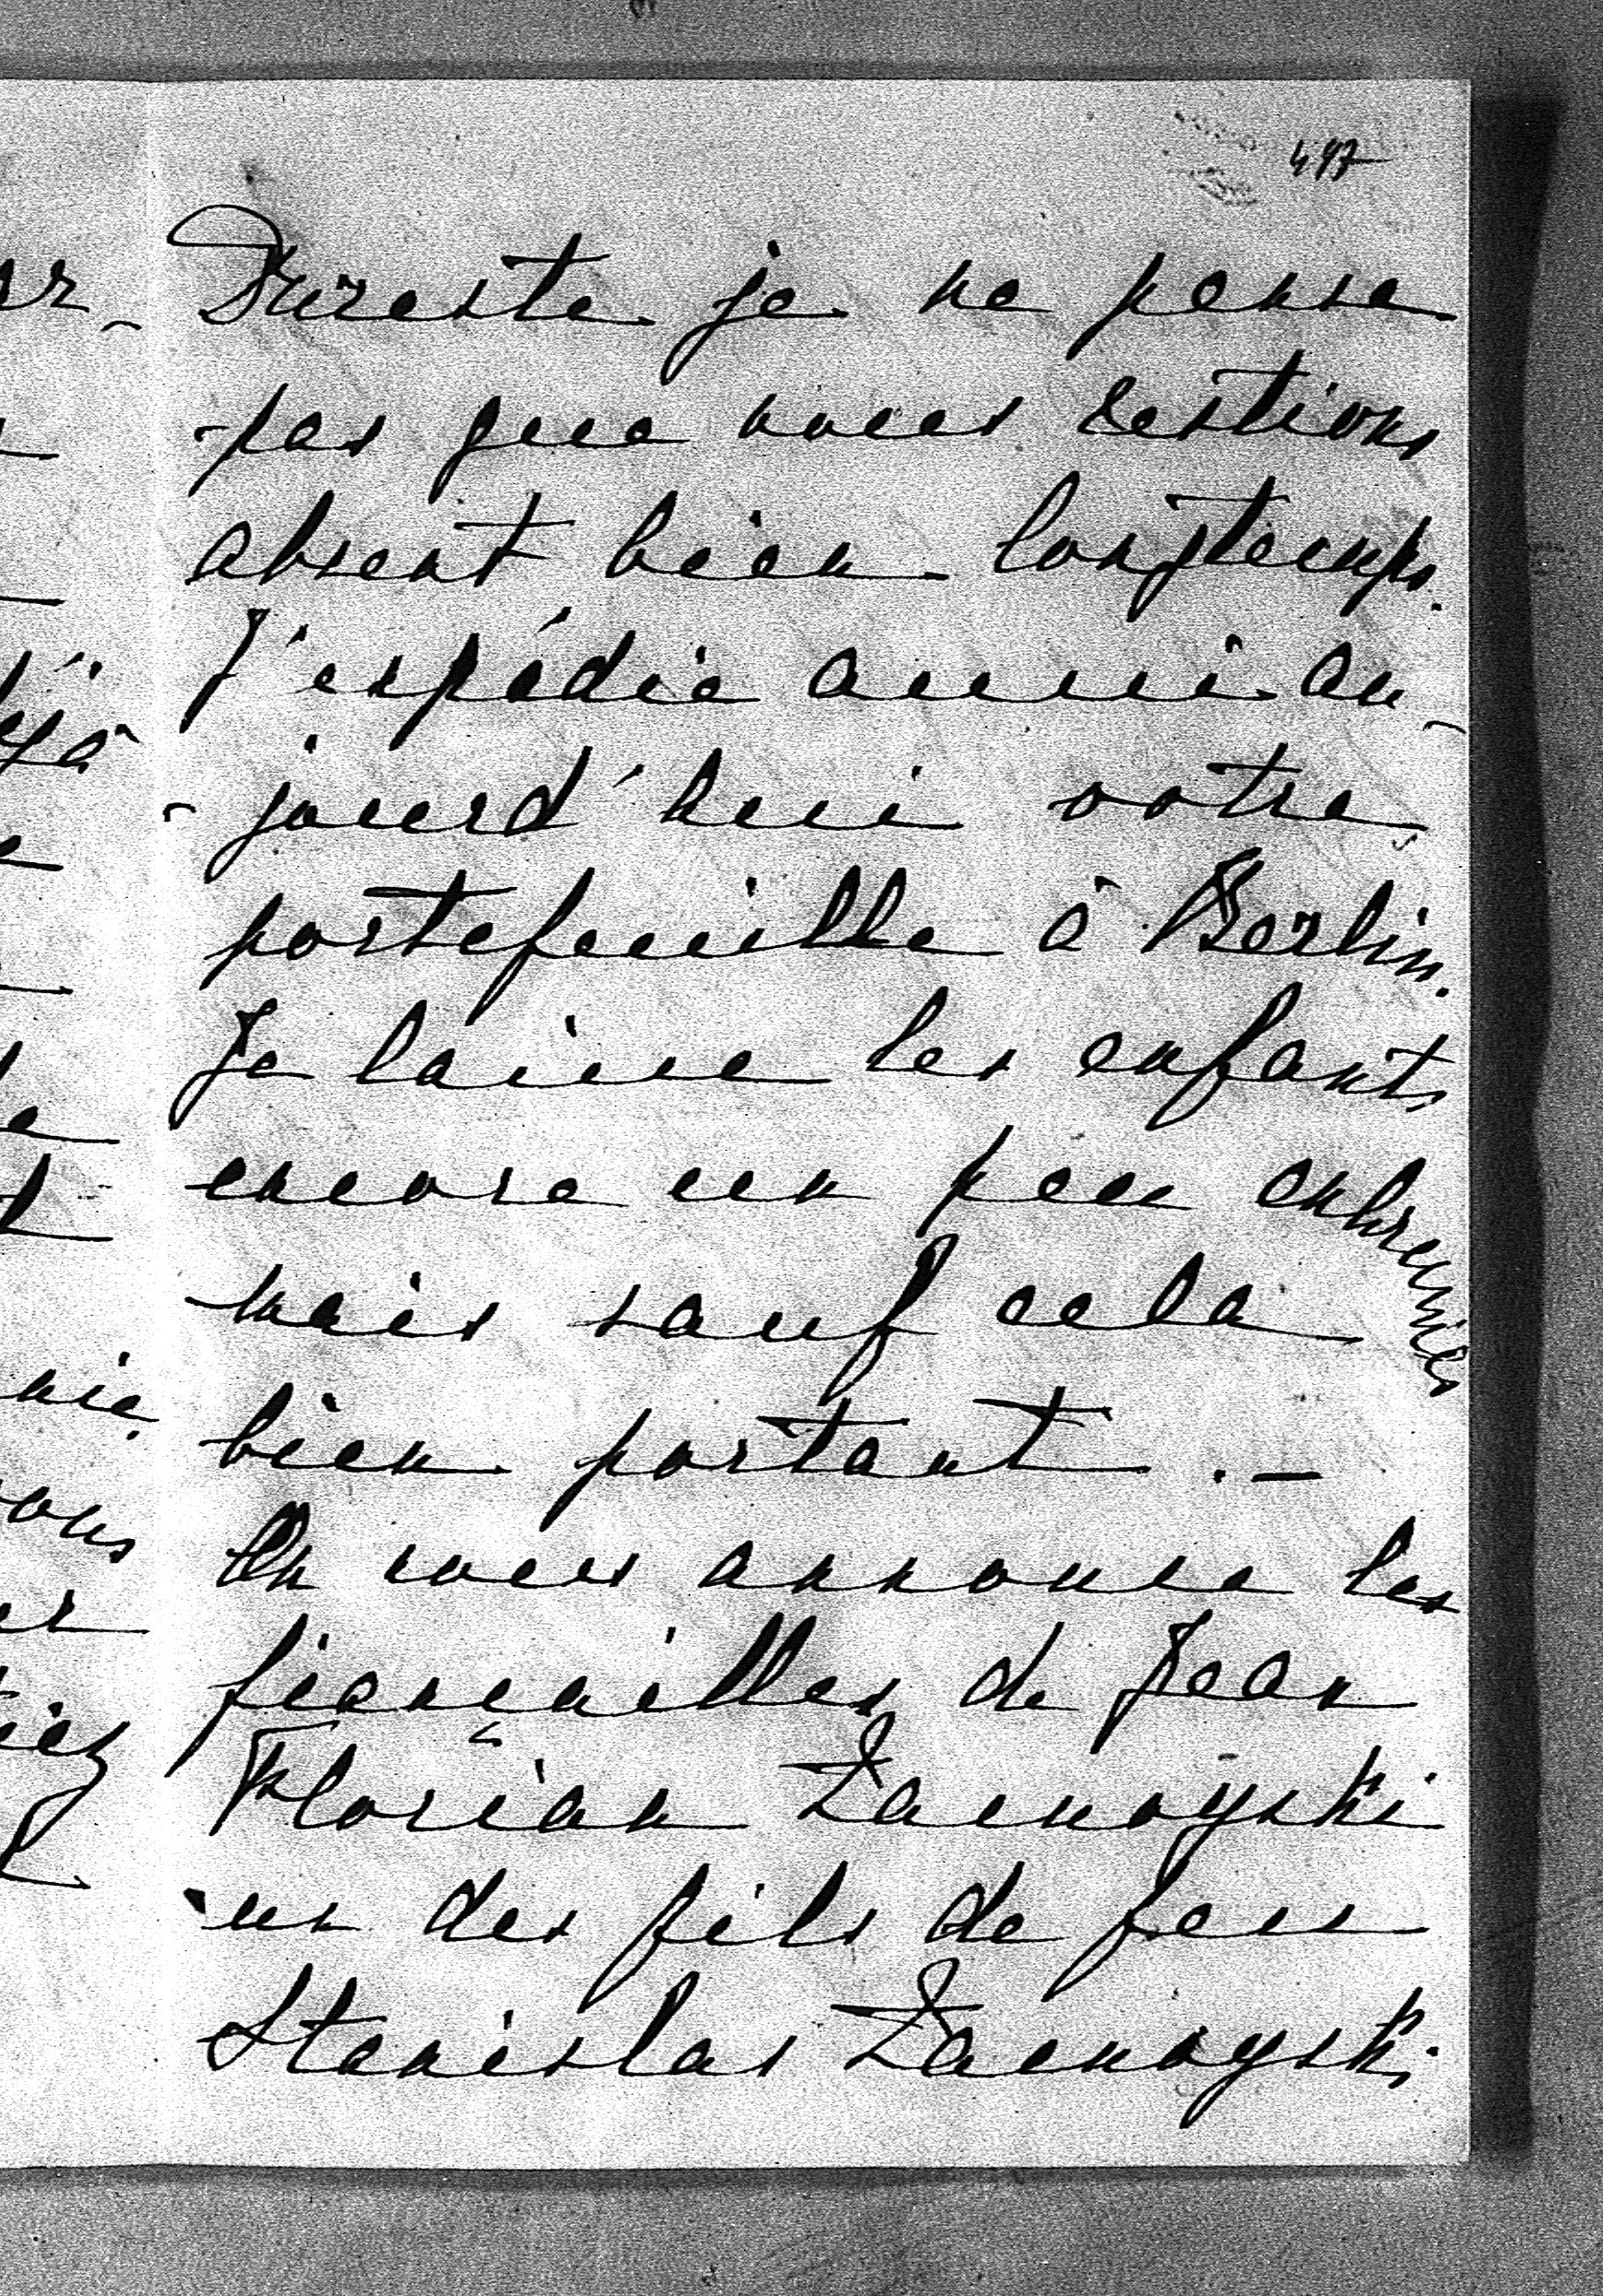 497
Dureste je ne pense
pas que nous restions
absent bien longtemps.
J'expédie aussi au-
-jourd'hui votre
portefeuille à Berlin.
Je laisse les enfants
encore un peu enhrumés
mais sauf cela
bien portant. -
On nous annonce les
fiançailles de Jean
Florian Zamoyski
un des fils de feu
Stanislas Zamoyski